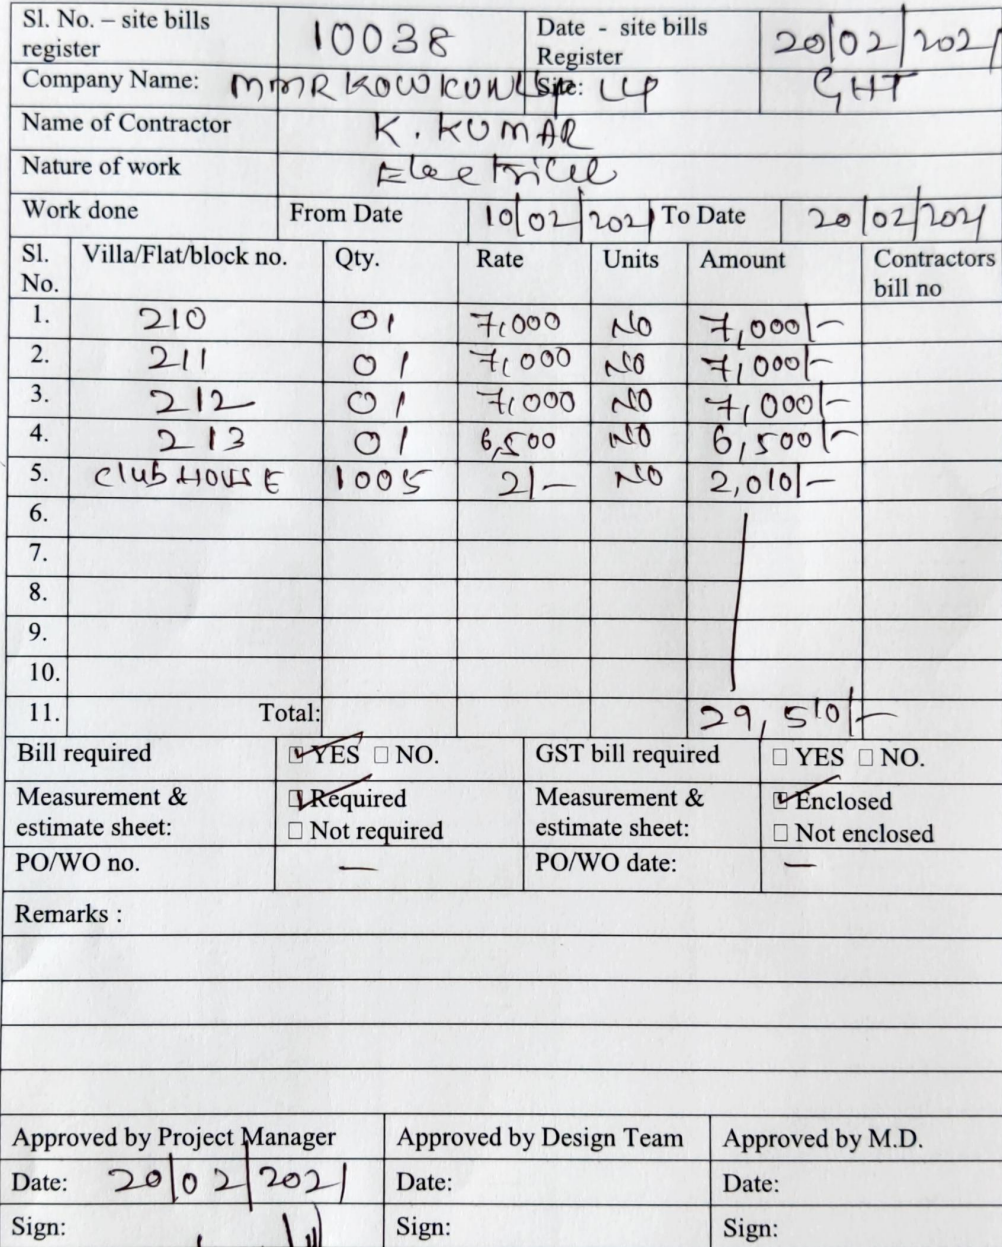 Sl. No. – site bills register 10038 Date - site bills Register 20/02/2021
Company Name: MMR KOWKUR LLP Site: GHT
Name of Contractor K. KUMAR
Nature of work Electrical
Work done From Date 10/02/2021 To Date 20/02/2021
Sl. No. Villa/Flat/block no. Qty. Rate Units Amount Contractors bill no
1. 210 01 7,000 NO 7,000/-
2. 211 01 7,000 NO 7,000/-
3. 212 01 7,000 NO 7,000/-
4. 213 01 6,500 NO 6,500/-
5. Club HOUSE 1005 2/- NO 2,010/-
6.
7.
8.
9.
10.
11. Total: 29,510/-
Bill required ☑ YES ☐ NO. GST bill required ☐ YES ☐ NO.
Measurement & estimate sheet: ☑ Required ☐ Not required Measurement & estimate sheet: ☑ Enclosed ☐ Not enclosed
PO/WO no. — PO/WO date: —
Remarks :
Approved by Project Manager Approved by Design Team Approved by M.D.
Date: 20/02/2021 Date: Date:
Sign: Sign: Sign: